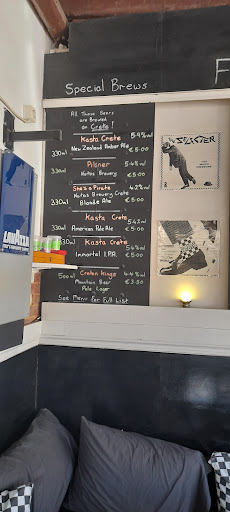 Special Brews
F
All These Beers
are Brewed
on
Crete!
Kasta Crete 5.4%
New Zealand Amber Ale
330ml €5.00
Pilsner 5.4%
330ml Notos Brewery €5.00
She's a Pirate 4.2%
Notos Brewery Crete
330ml Blonde Ale €5.00
Kasta Crete 5.4%
330ml American Pale Ale €5.00
330ml Kasta Crete 5.6%
Immortal I.P.A. €5.00
500ml Cretan Kings 4.4%
Mountain Beer €3.50
Pale Lager
See Menu for Full List
SELECTER